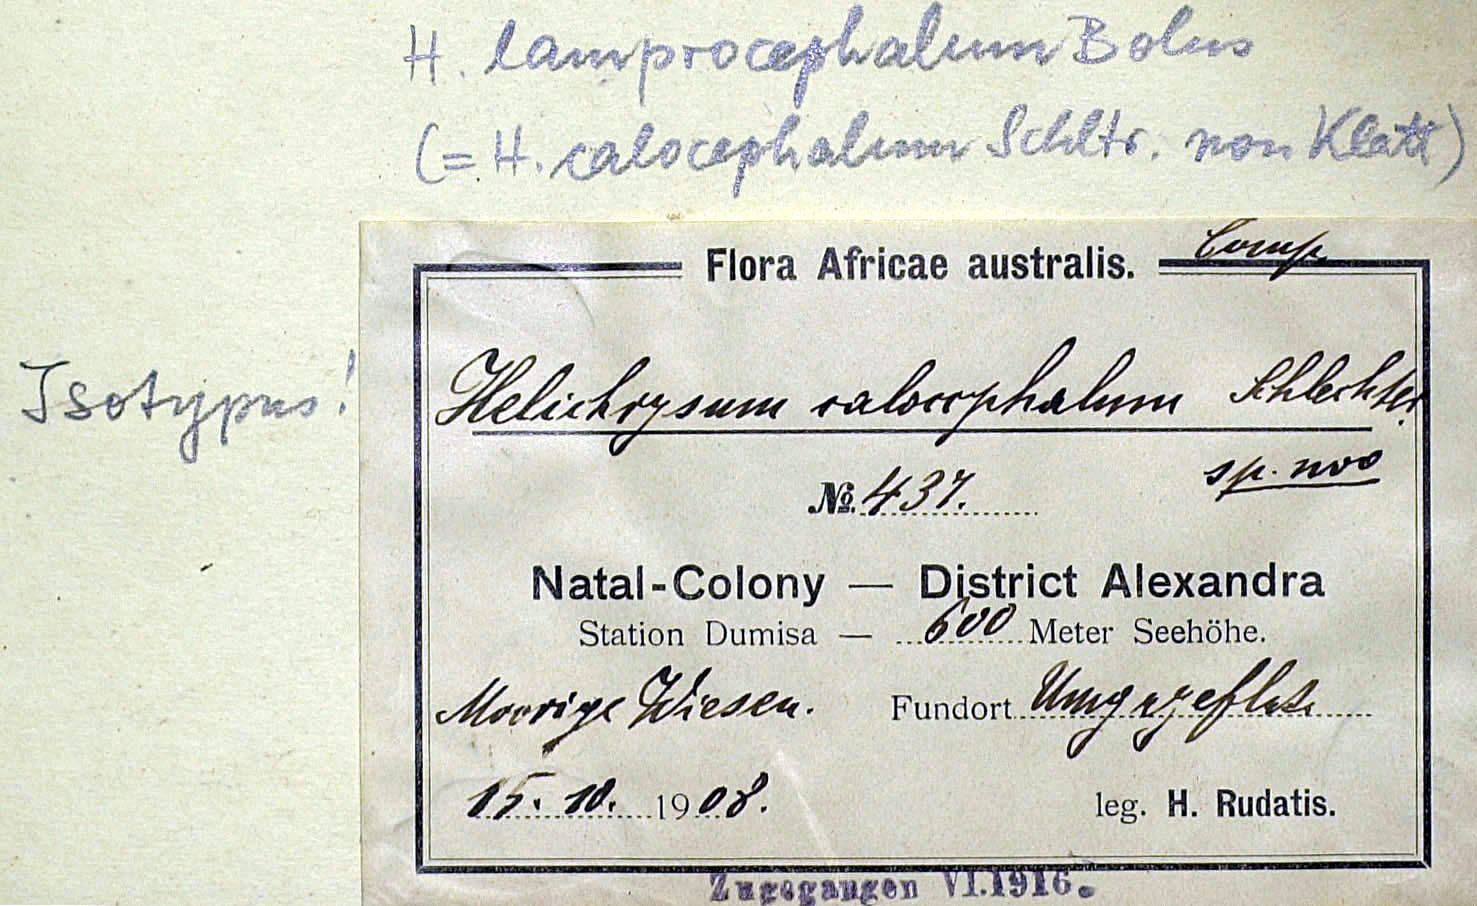 H. lamprocephalum Bolus
(= H. calocephalum Schltr. non Klatt)
Flora Africae australis. Comp
Isotypus!
Helichrysum calocephalum Schlechter
sp. nov
№ 437.
Natal-Colony — District Alexandra
Station Dumisa — 600 Meter Seehöhe.
Moorige Wiesen. Fundort
15. 10. 1908. leg. H. Rudatis.
Zugegangen VI.1916.